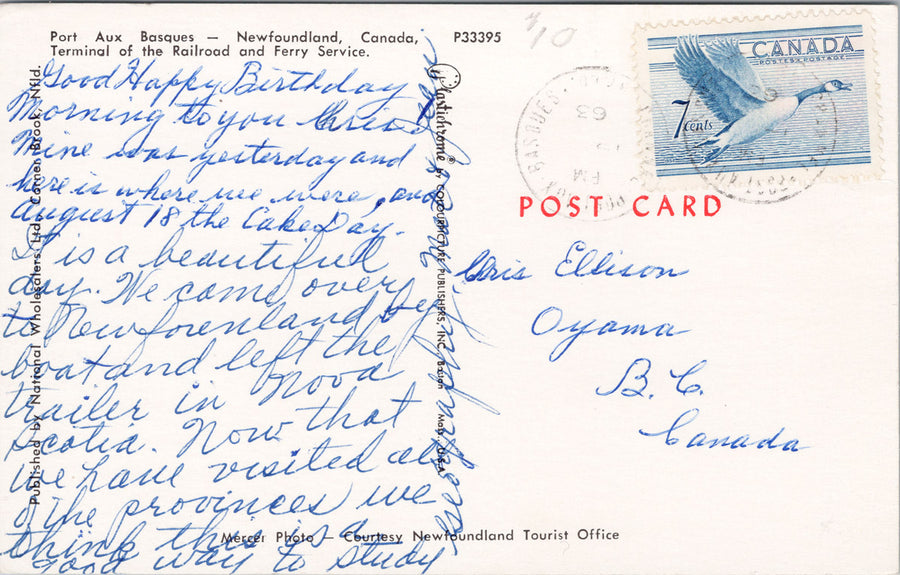 Port Aux Basques — Newfoundland, Canada,
Terminal of the Railroad and Ferry Service.
P33395
Good Happy Birthday
Morning to you Chris
Mine was yesterday and
here is where we were, and
August 18 the Cake Day.
It is a beautiful
day. We came over
to Newforenland by
boat and left the
trailer in Nova
Scotia. Now that
we have visited all
of the provinces we
think this is a
good way to study
Published by National Wholesalers, Ltd., Corner Brook, Nfld.
Plastichrome ® by COLOURPICTURE PUBLISHERS, INC. Boston Mass., U.S.A.
Mercer Photo — Courtesy Newfoundland Tourist Office
7/10
PORT AUX BASQUES
PM
63
CANADA
POSTES POSTAGE
7 cents
POST CARD
Chris Ellison
Oyama
B.C.
Canada